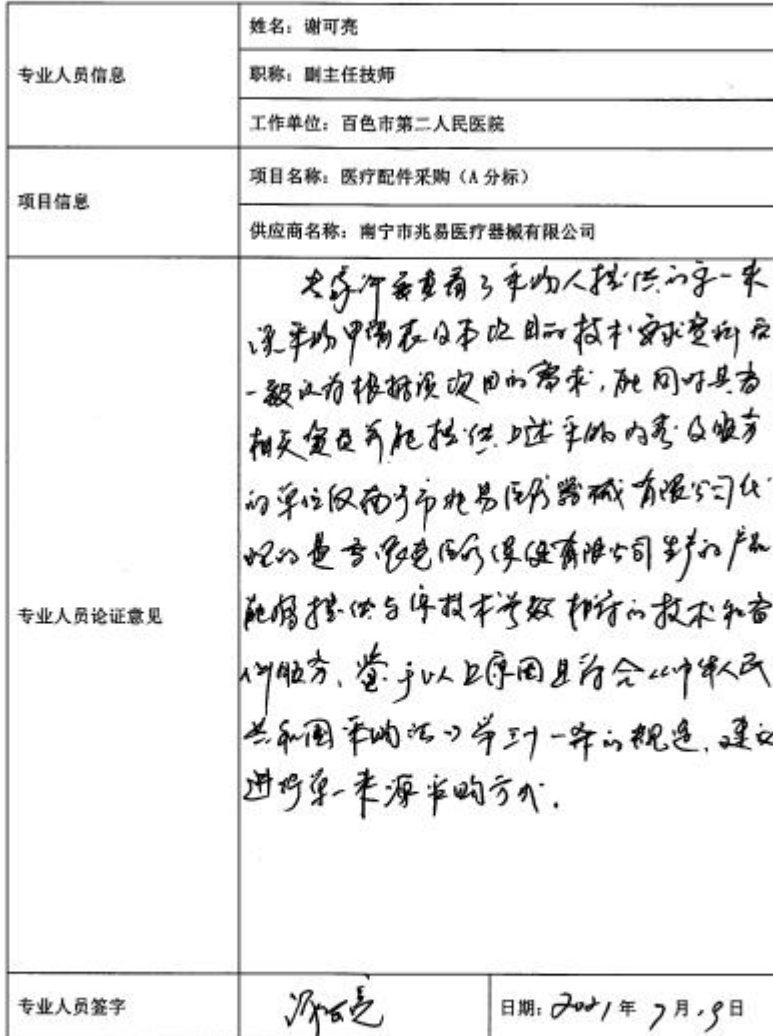 专业人员信息
姓名：谢可亮
职称：副主任技师
工作单位：百色市第二人民医院
项目信息
项目名称：医疗配件采购（A 分标）
供应商名称：南宁市兆易医疗器械有限公司
专业人员论证意见
专家评委查看了采购人提供的单一来
源采购申请表及本项目的技术要求资料后
一致认为根据该项目的需求，能同时具备
相关资质并能提供上述采购内容及服务
的单位仅南宁市兆易医疗器械有限公司代
理的是医疗保健有限公司生产的产品
能够提供与原技术参数相符的技术和售
后服务，鉴于以上原因且符合《中华人民
共和国采购法》第三十一条的规定，建议
进行单一来源采购方式。
专业人员签字
谢可亮
日期：2021年7月19日